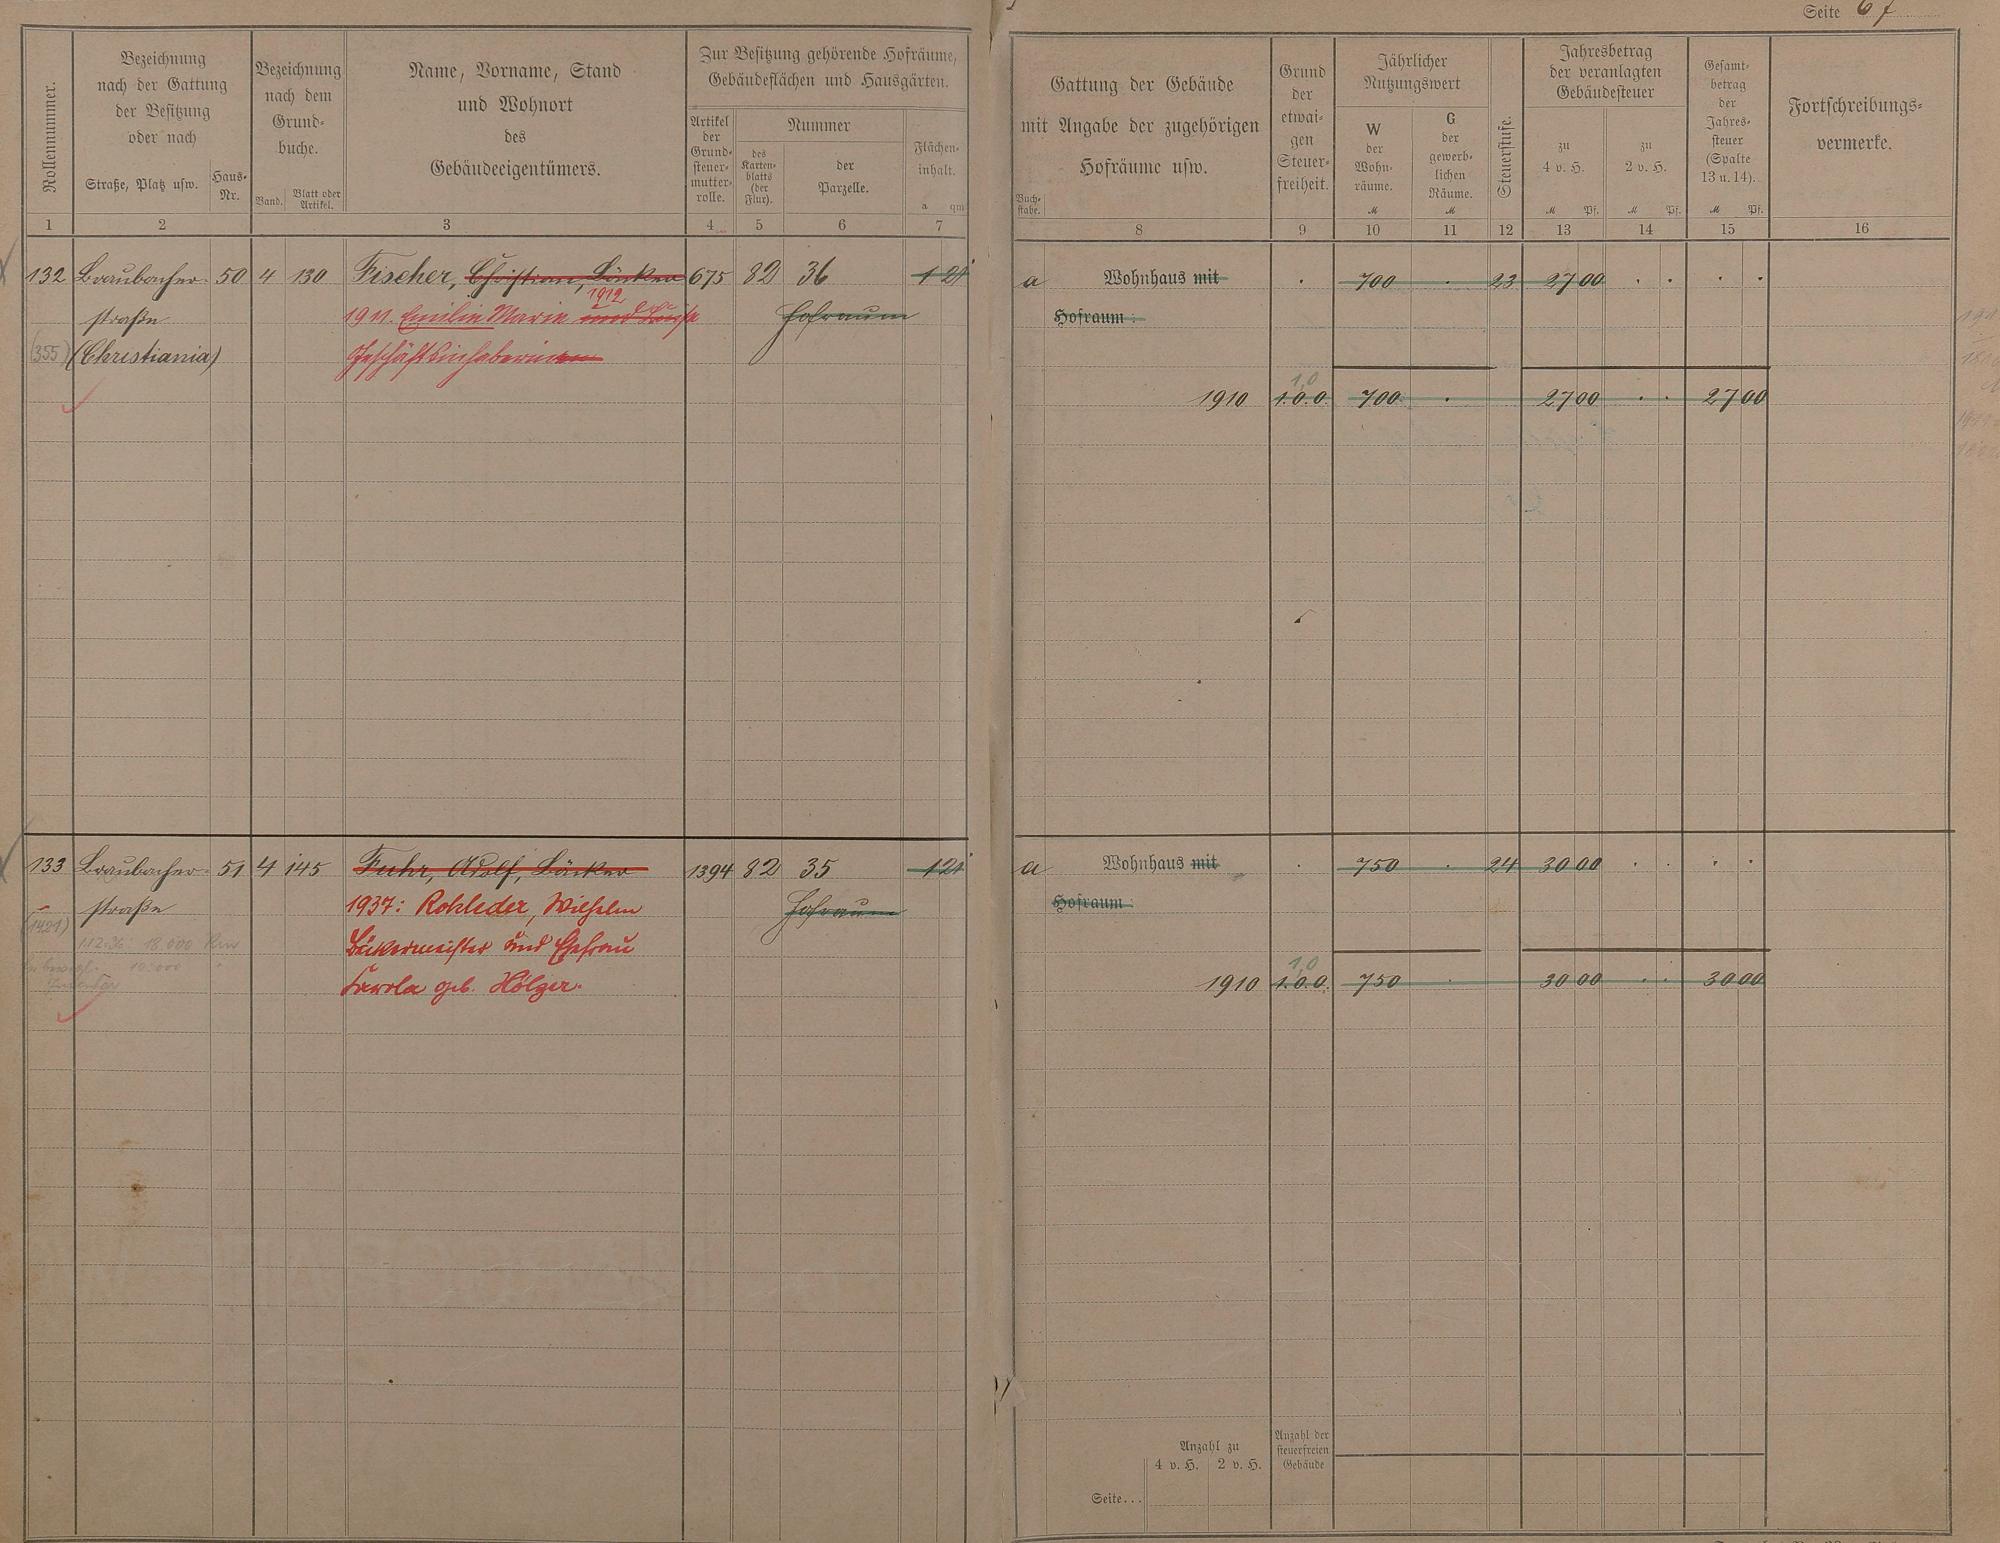 Seite 67
Rollennummer.
Bezeichnung
nach der Gattung
der Besitzung
oder nach
Straße, Platz usw.
Haus-
Nr.
Bezeichnung
nach dem
Grund-
buche.
Band.
Blatt oder
Artikel.
Name, Vorname, Stand
und Wohnort
des
Gebäudeeigentümers.
Zur Besitzung gehörende Hofräume,
Gebäudeflächen und Hausgärten.
Artikel
der
Grund-
steuer-
mutter-
rolle.
Nummer
des
Karten-
blatts
(der
Flur).
der
Parzelle.
Flächen-
inhalt.
a qm
Buch-
stabe.
Gattung der Gebäude
mit Angabe der zugehörigen
Hofräume usw.
Grund
der
etwai-
gen
Steuer-
freiheit.
Jährlicher
Nutzungswert
W
der
Wohn-
räume.
M
G
der
gewerb-
lichen
Räume.
M
Steuerstufe.
Jahresbetrag
der veranlagten
Gebäudesteuer
zu
4 v. H.
M Pf.
zu
2 v. H.
M Pf.
Gesamt-
betrag
der
Jahres-
steuer
(Spalte
13 u. 14).
M Pf.
Fortschreibungs-
vermerke.
1 2 3 4 5 6 7 8 9 10 11 12 13 14 15 16
132 Braubacher- 50 4 130 Fischer, Christian, Bäcker 675 82 36 1 21 a Wohnhaus mit . 700 . 23 27 00 . . . .
1912
straße 1911. Emilie Marie und Louise Hofraum Hofraum :
(355) (Christiania) Geschäftsinhaberinnen
1,0
1910 1.0.0. 700 . 27 00 . . 27 00
133 Braubacher- 51 4 145 Fuhr, Adolf, Bäcker 1394 82 35 1 21 a Wohnhaus mit . 750 . 24 30 00 . . . .
straße 1937: Rohleder, Wilhelm Hofraum Hofraum :
(1421)
1.12.36: 18.000 Rm
Bäckermeister und Ehefrau
10.000 "
Carola geb. Hölger.
1,0
1910 1.0.0. 750 . 30 00 . . 30 00
Anzahl zu
4 v. H. 2 v. H.
Anzahl der
steuerfreien
Gebäude
Seite...